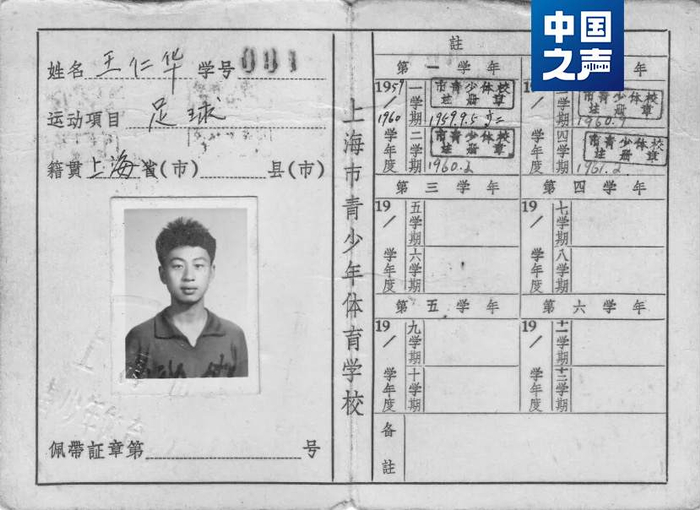 中国之声
姓名 王仁华 学号 001
运动项目 足球
籍贯 上海省(市) 县(市)
佩带証章第 号
上海市青少年体育学校
註
第一学年
年
1959/1960 一学期 市青少体校 註册章 1959.9.5
二学期 市青少体校 註册章 1960.2
三学期 市青少体校 註册章 1960.9
四学期 市青少体校 註册章 1961.2
第三学年 第四学年
19 / 学年度 五学期 六学期
19 / 学年度 七学期 八学期
第五学年 第六学年
19 / 学年度 九学期 十学期
19 / 学年度 十一学期 十二学期
备註